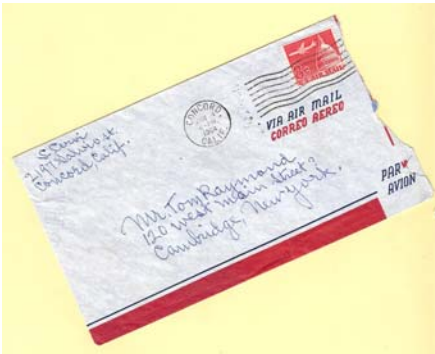 S. Cervi
2197 Salvio st.
Concord Calif.
CONCORD
1964
CALIF.
VIA AIR MAIL
CORREO AEREO
PAR
AVION
Mr. Tom Raymond
120 West Main Street?
Cambridge, New York.